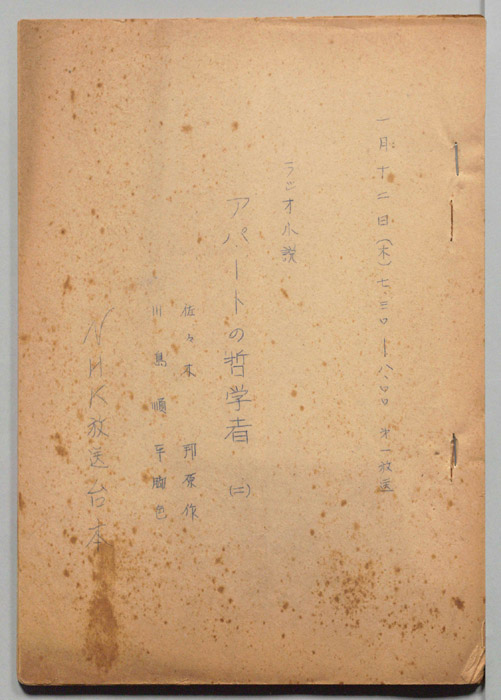 一月十二日(木)七、三〇ー八、〇〇 第一放送
ラジオ小説
アパートの哲学者 (二)
佐々木邦原作
川島順平脚色
NHK放送台本